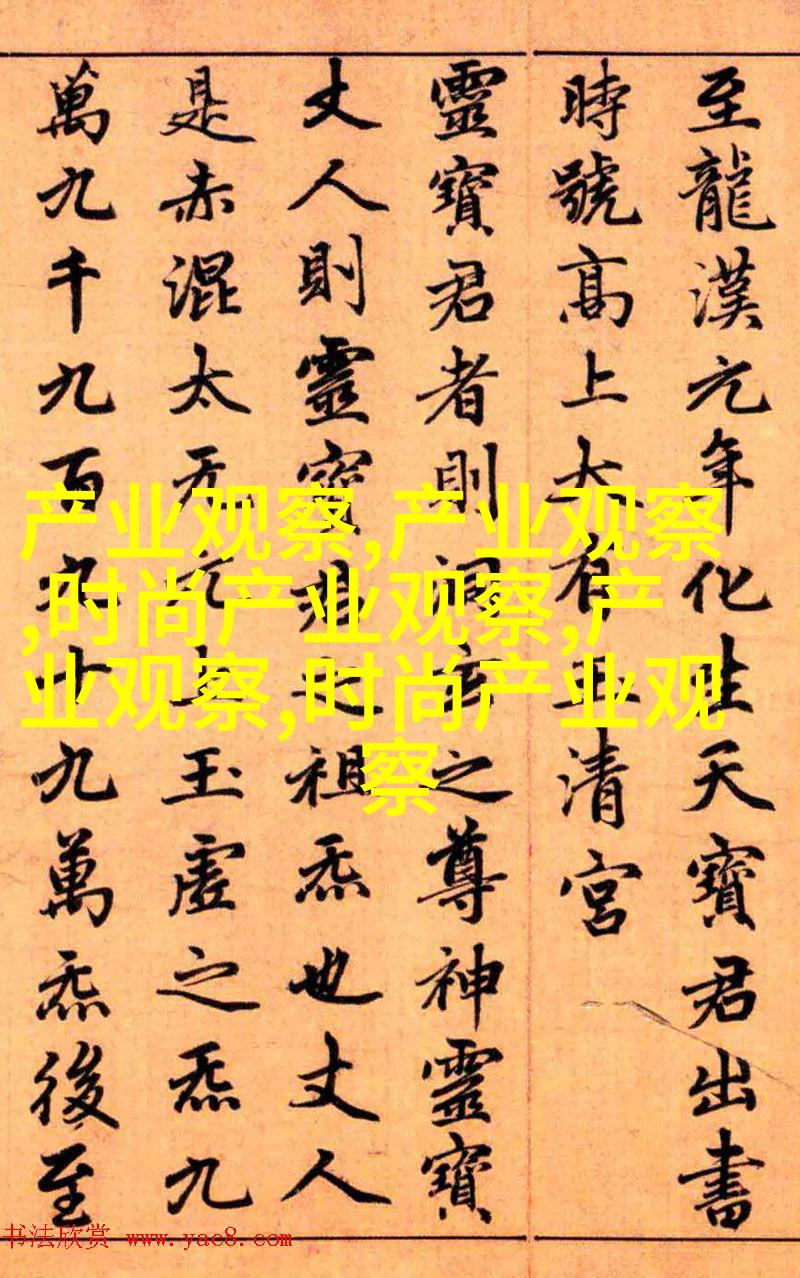 至龍漢元年化生天寶君出書
時號高上大有玉清宮
靈寶君者則洞玄之尊神靈寶
丈人則靈寶君之祖炁也丈人
是赤混太无元上玉虛之炁九
萬九千九百九十九萬炁後至
产业观察,产业观察
,时尚产业观察,产
业观察,时尚产业观
察
书法欣赏 www.yac8.com